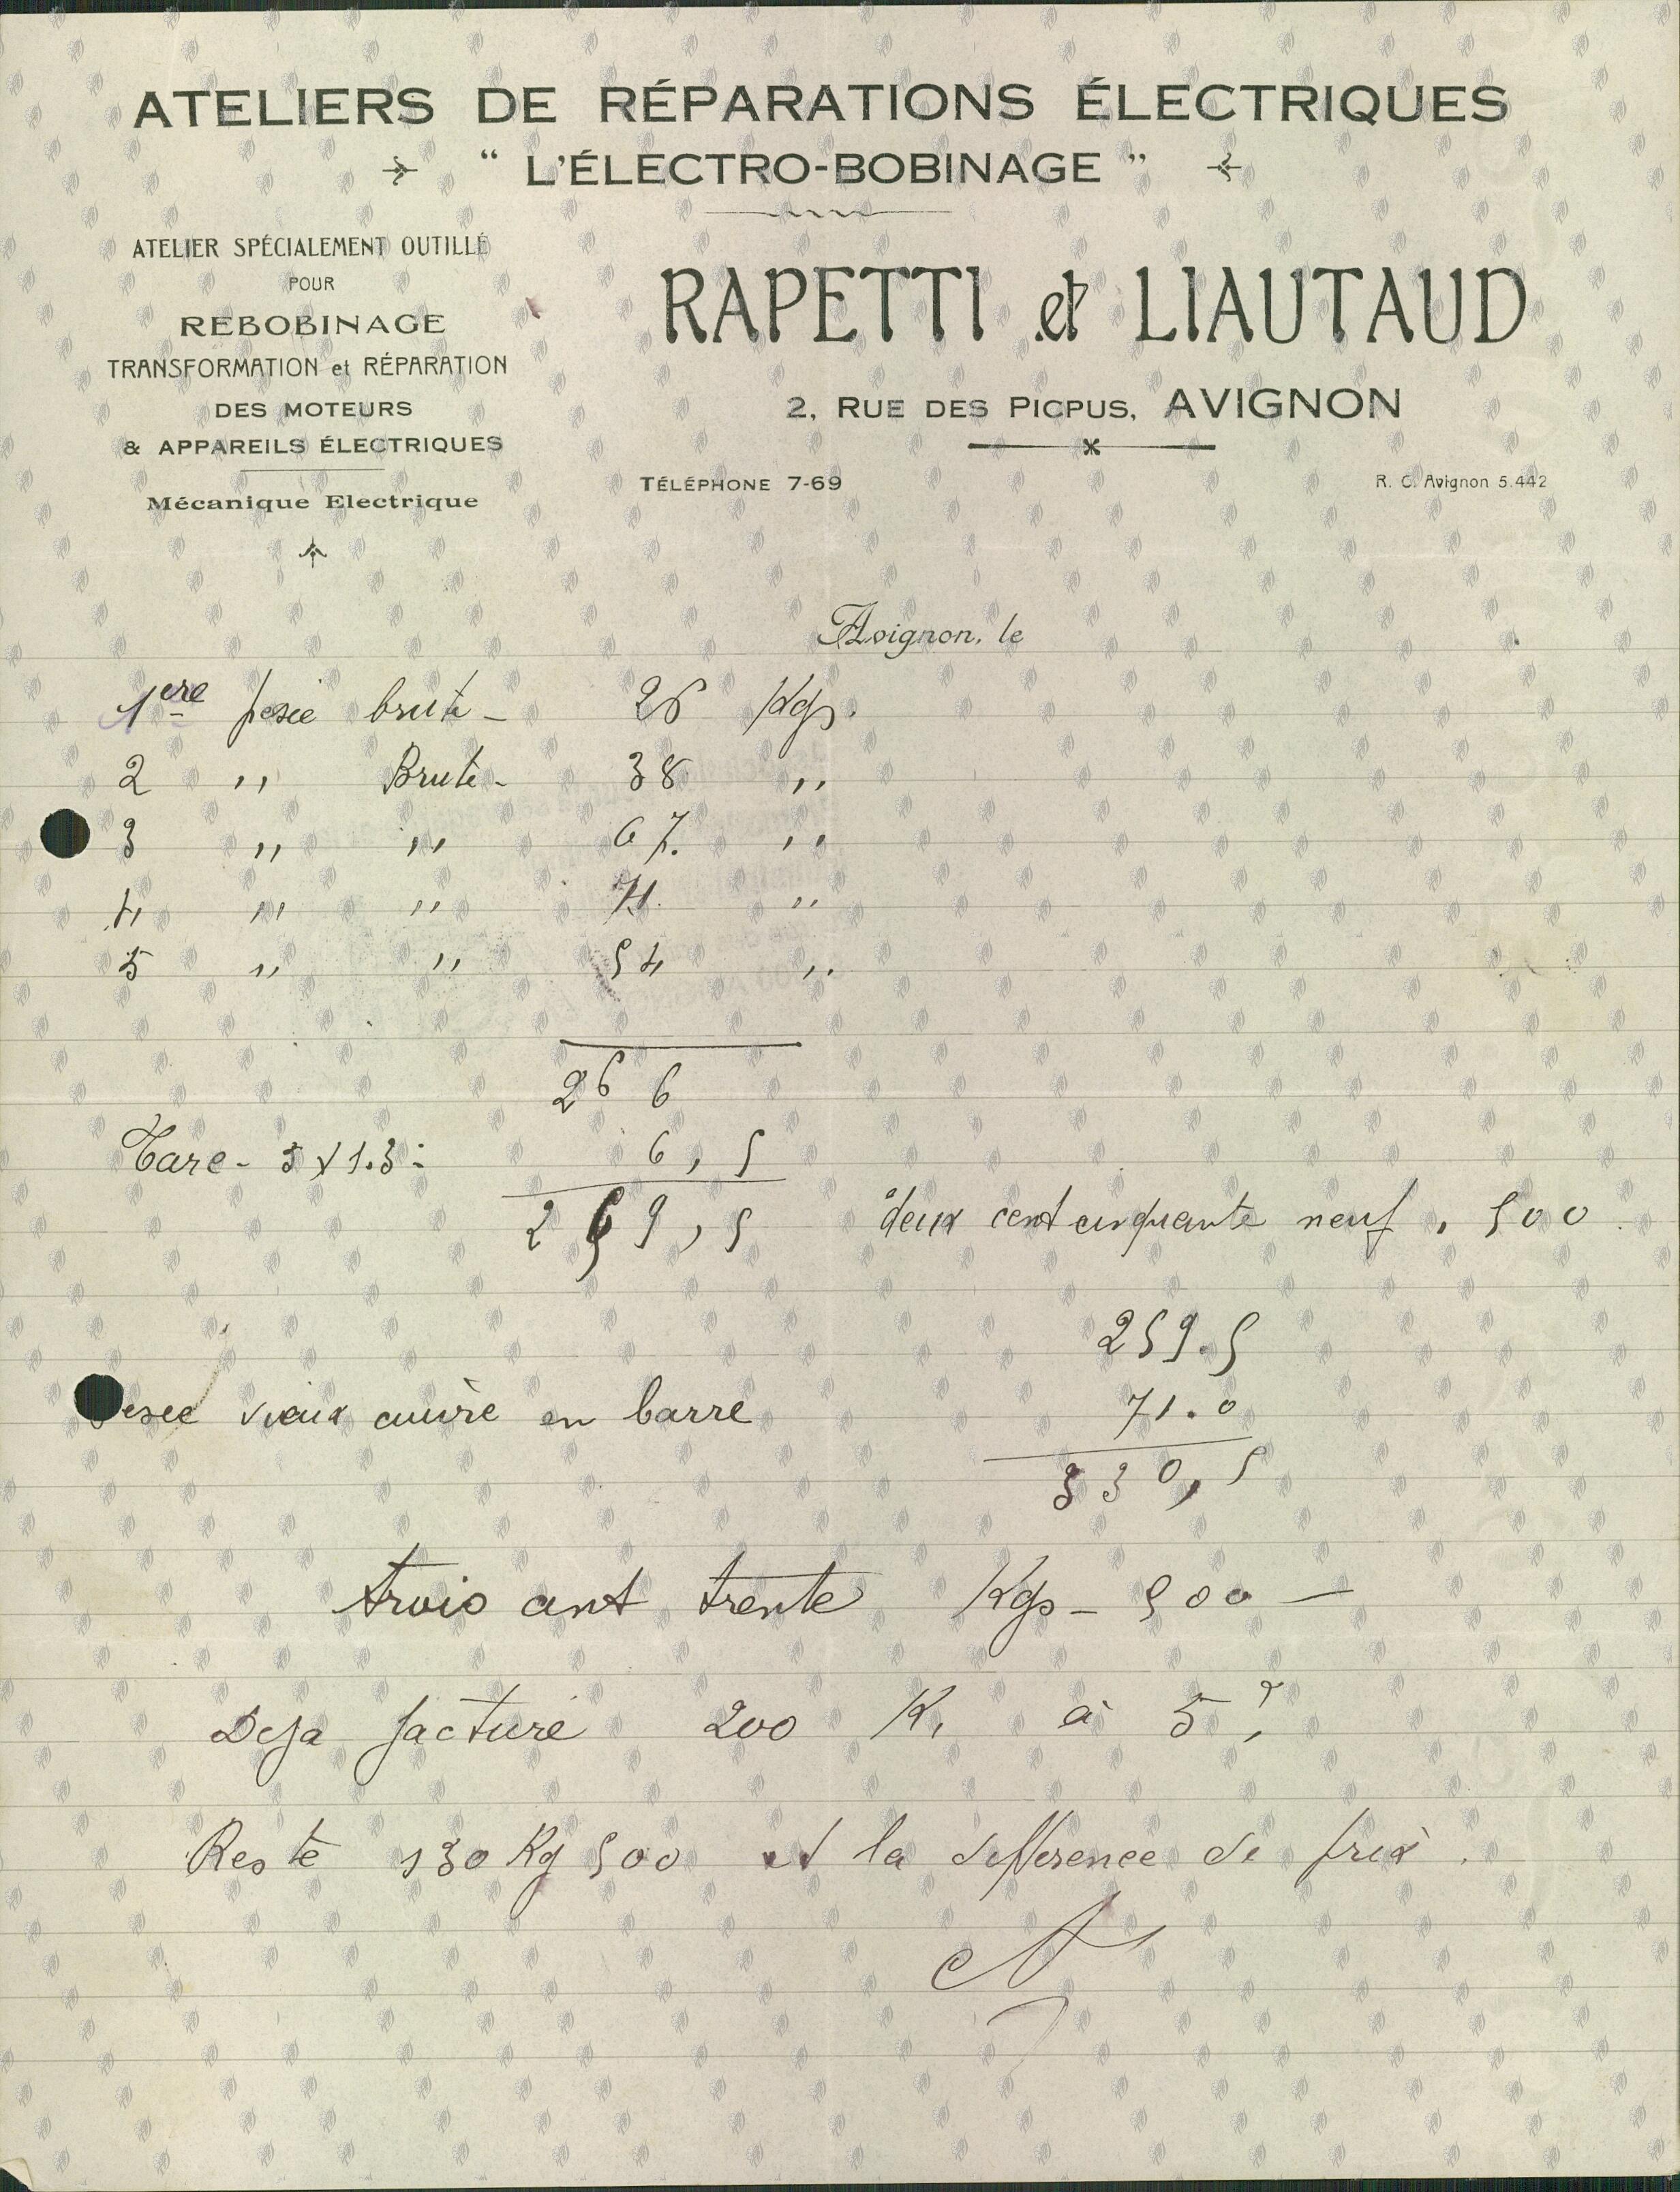 ATELIERS DE RÉPARATIONS ÉLECTRIQUES
“ L'ÉLECTRO-BOBINAGE ”
ATELIER SPÉCIALEMENT OUTILLÉ
POUR
REBOBINAGE
TRANSFORMATION et RÉPARATION
DES MOTEURS
& APPAREILS ÉLECTRIQUES
Mécanique Electrique
RAPETTI et LIAUTAUD
2, RUE DES PICPUS, AVIGNON
TÉLÉPHONE 7-69
R. C. Avignon 5.442
Avignon, le
1ere pesée brute - 26 Kgs.
2 ,, Brute - 38 ,,
3 ,, ,, 67. ,,
4 ,, ,, 71. ,,
5 ,, ,, 54 ,,
266
Tare - 5 x 1.3 : 6,5
259,5 deux cent cinquante neuf, 500
259.5
Pesee vieux cuivre en barre 71.0
330,5
trois cent trente Kgs - 500 —
Deja facturé 200 K. à 5 ?
Reste 130 Kg 500 et la difference de prix.